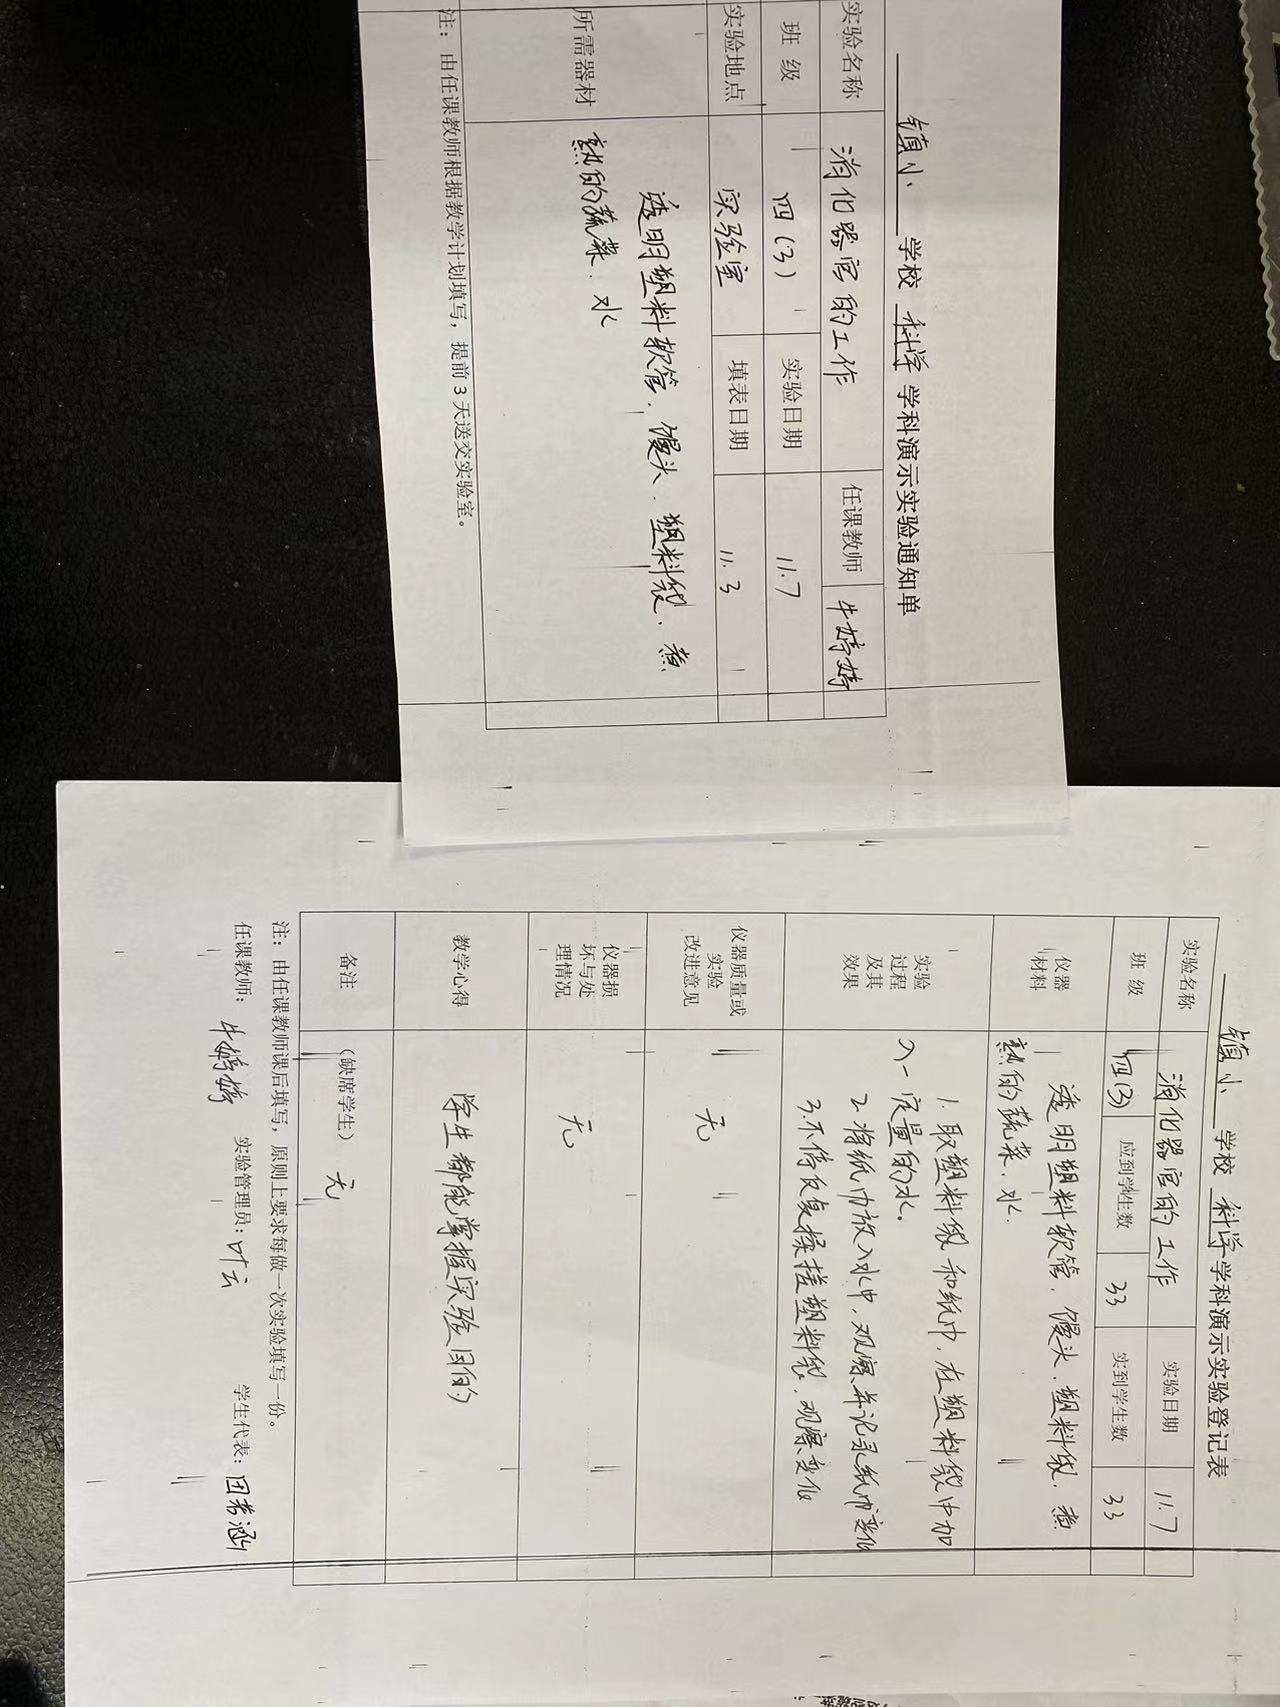 镇小 学校 科学 学科演示实验通知单
实验名称 消化器官的工作 任课教师 牛婷婷
班 级 四(3) 实验日期 11.7
实验地点 实验室 填表日期 11.3
所需器材 透明塑料软管、馒头、塑料袋、煮
熟的蔬菜、水
注：由任课教师根据教学计划填写，提前 3 天送交实验室。
镇小 学校 科学 学科演示实验登记表
实验名称 消化器官的工作 实验日期 11.7
班 级 四(3) 应到学生数 33 实到学生数 33
仪器
材料
透明塑料软管、馒头、塑料袋、煮
熟的蔬菜、水.
实验
过程
及其
效果
1. 取塑料袋和纸巾，在塑料袋中加
入一定量的水。
2. 将纸巾放入水中，观察并记录纸巾变化
3. 不停反复揉搓塑料袋，观察变化
仪器质量或
实验
改进意见
无
仪器损
坏与处
理情况
无
教学心得 学生都能掌握实验目的
备注 （缺席学生） 无
注：由任课教师课后填写，原则上要求每做一次实验填写一份。
任课教师：牛婷婷 实验管理员：叶云 学生代表：